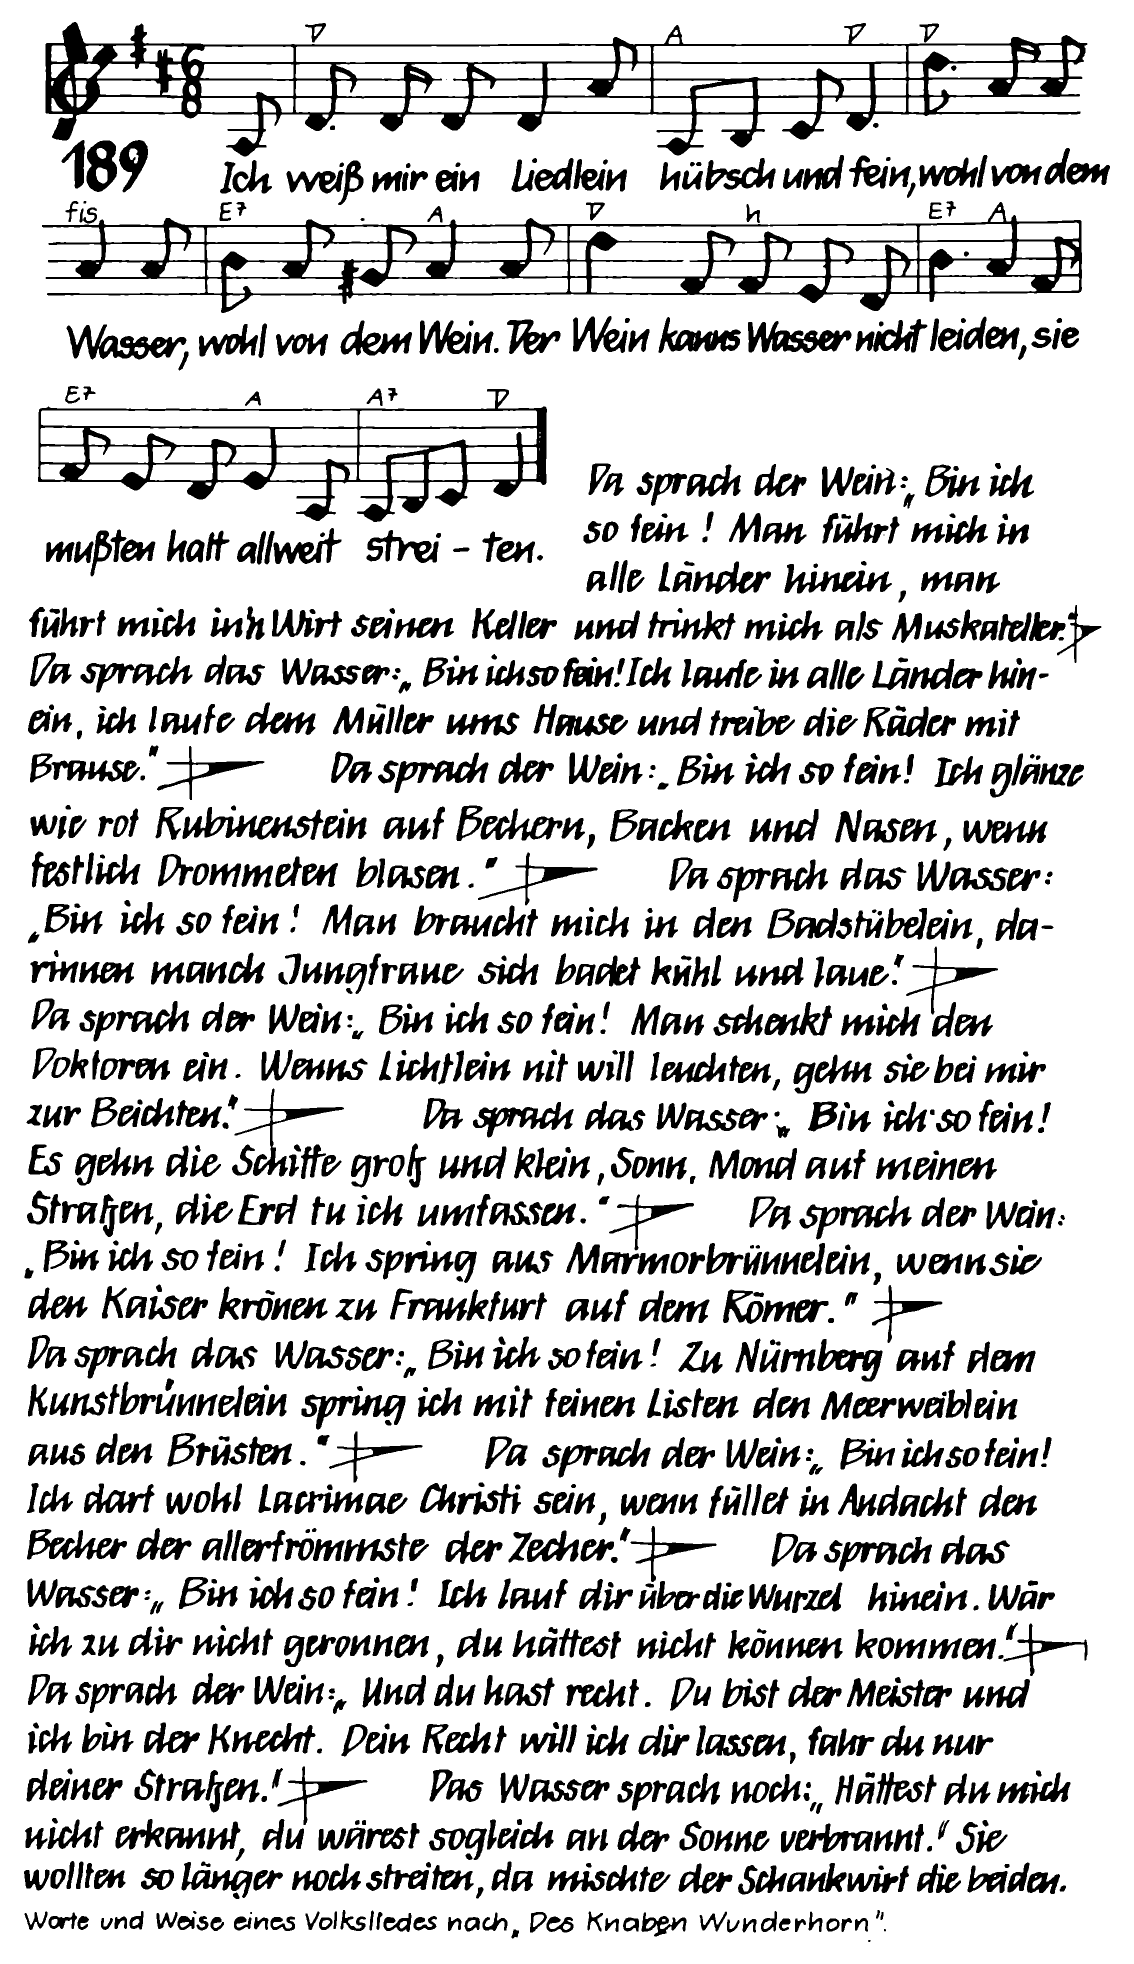 D A D D
6
8
189
Ich weiß mir ein Liedlein hübsch und fein, wohl von dem
fis E7 A D h E7 A
Wasser, wohl von dem Wein. Der Wein kanns Wasser nicht leiden, sie
E7 A A7 D
mußten halt allweit strei - ten.
Da sprach der Wein: „Bin ich
so fein! Man führt mich in
alle Länder hinein, man
führt mich in'n Wirt seinen Keller und trinkt mich als Muskateller."
Da sprach das Wasser: „Bin ich so fein! Ich laufe in alle Länder hin-
ein, ich laufe dem Müller ums Hause und treibe die Räder mit
Brause." Da sprach der Wein: „Bin ich so fein! Ich glänze
wie rot Rubinenstein auf Bechern, Backen und Nasen, wenn
festlich Drommeten blasen." Da sprach das Wasser:
„Bin ich so fein! Man braucht mich in den Badstübelein, da-
rinnen manch Jungfraue sich badet kühl und laue."
Da sprach der Wein: „Bin ich so fein! Man schenkt mich den
Doktoren ein. Wenns Lichtlein nit will leuchten, gehn sie bei mir
zur Beichten." Da sprach das Wasser: „Bin ich so fein!
Es gehn die Schiffe groß und klein, Sonn, Mond auf meinen
Straßen, die Erd tu ich umfassen." Da sprach der Wein:
„Bin ich so fein! Ich spring aus Marmorbrünnelein, wenn sie
den Kaiser krönen zu Frankfurt auf dem Römer."
Da sprach das Wasser: „Bin ich so fein! Zu Nürnberg auf dem
Kunstbrünnelein spring ich mit feinen Listen den Meerweiblein
aus den Brüsten." Da sprach der Wein: „Bin ich so fein!
Ich darf wohl Lacrimae Christi sein, wenn füllet in Andacht den
Becher der allerfrömmste der Zecher." Da sprach das
Wasser: „Bin ich so fein! Ich lauf dir über die Wurzel hinein. Wär
ich zu dir nicht geronnen, du hättest nicht können kommen."
Da sprach der Wein: „Und du hast recht. Du bist der Meister und
ich bin der Knecht. Dein Recht will ich dir lassen, fahr du nur
deiner Straßen." Das Wasser sprach noch: „Hättest du mich
nicht erkannt, du wärest sogleich an der Sonne verbrannt." Sie
wollten so länger noch streiten, da mischte der Schankwirt die beiden.
Worte und Weise eines Volksliedes nach „Des Knaben Wunderhorn".